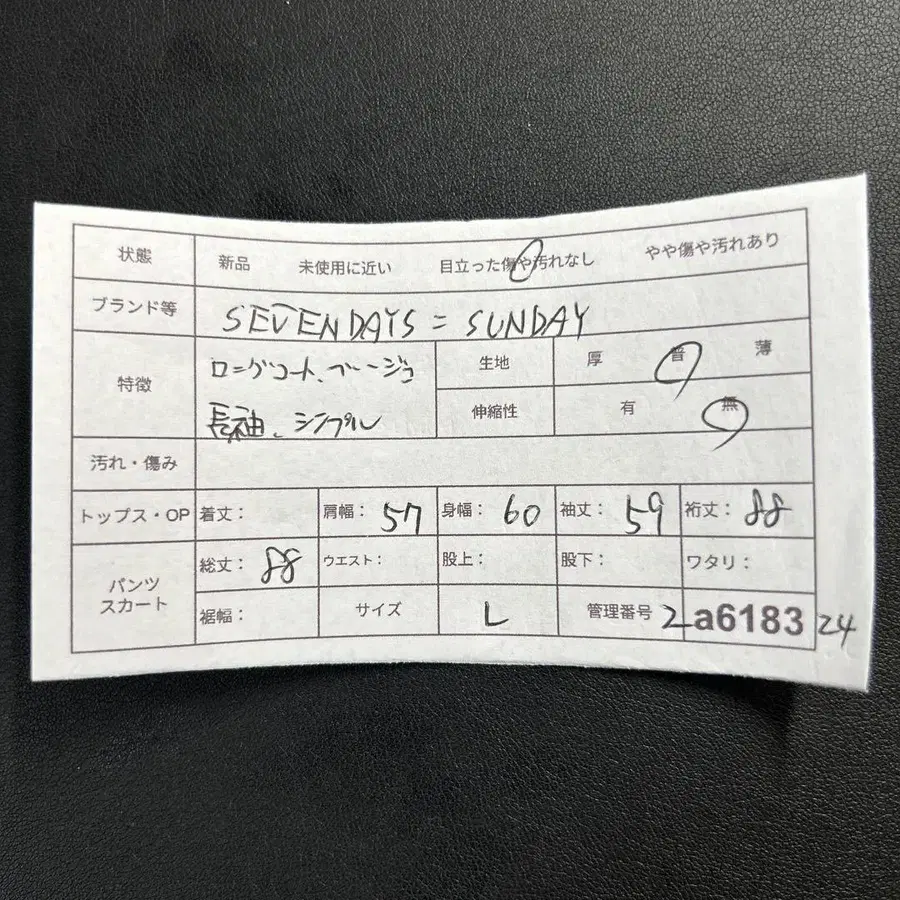 状態 新品 未使用に近い 目立った傷や汚れなし やや傷や汚れあり
ブランド等 SEVENDAYS=SUNDAY
特徴 ロングコート、ベージュ 生地 厚 普 薄
長袖、シンプル 伸縮性 有 無
汚れ・傷み
トップス・OP 着丈: 肩幅: 57 身幅: 60 袖丈: 59 裄丈: 88
パンツ スカート 総丈: 88 ウエスト: 股上: 股下: ワタリ:
裾幅: サイズ L 管理番号 2a6183 24